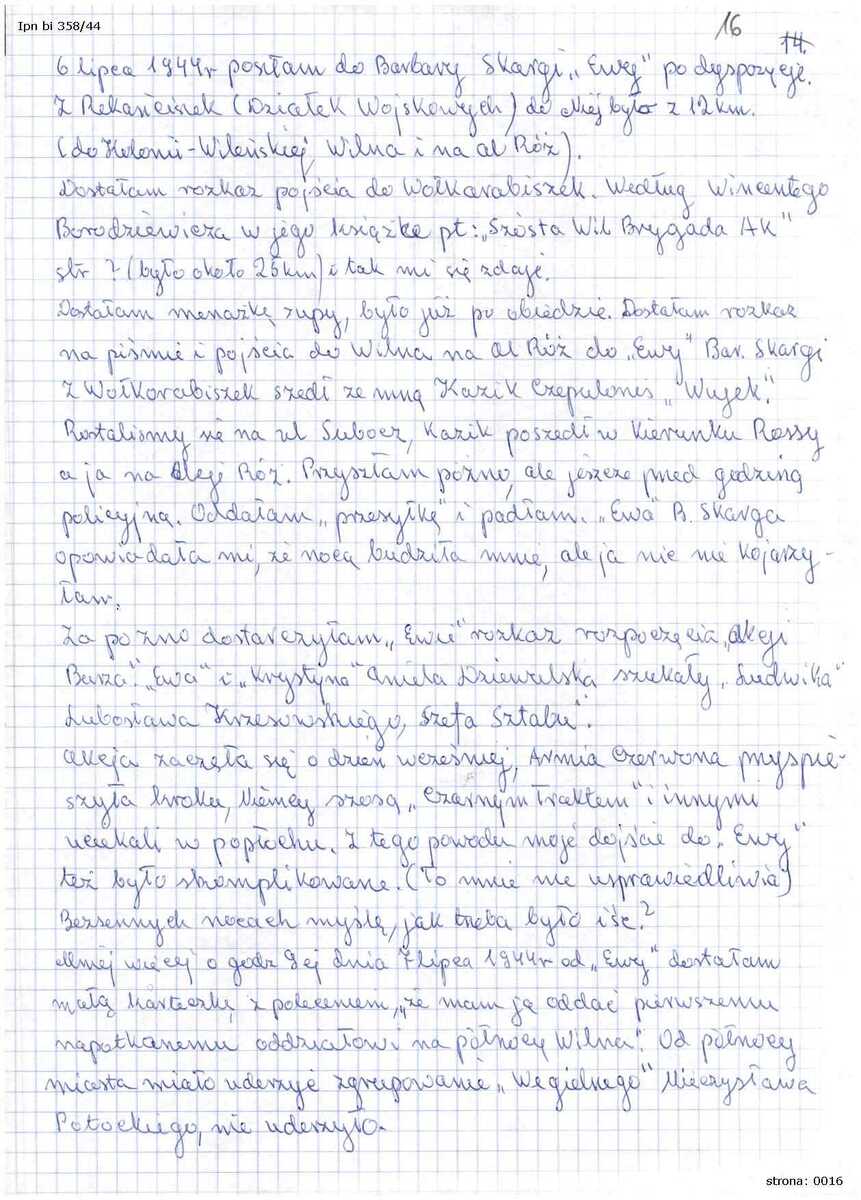 Ipn bi 358/44
16
14.
6 lipca 1944r poszłam do Barbary Skargi „Ewy" po dyspozycje.
Z Rekanciszek (Działek Wojskowych) do Niej było z 12 km.
(do Kolonii-Wileńskiej, Wilna i na al Róż).
Dostałam rozkaz pojścia do Wołkorabiszek. Według Wincentego
Borodziewicza w jego książke pt: „Szósta Wil Brygada AK"
str ? (było około 25km) i tak mi się zdaje.
Dostałam menażkę zupy, było już po obiedzie. Dostałam rozkaz
na piśmie i pojścia do Wilna na al Róż do „Ewy" Bar. Skargi
Z Wołkorabiszek szedł ze mną Kazik Czepulonis „Wujek".
Rostaliśmy się na ul Subocz, Kazik poszedł w kierunku Rossy
a ja na Aleje Róż. Przyszłam póżno, ale jeszcze przed godziną
policyjną. Oddałam „przesyłkę" i padłam. „Ewa" B. Skarga
opowiadała mi, że nocą budziła mnie, ale ja nic nie kojarzy-
łam.
Za pożno dostarczyłam „Ewie" rozkaz rozpoczęcia „Akcji
Burza". „Ewa" i „Krystyna" Aniela Dziewulska szukały „Ludwika"
Lubosława Krzesowskiego, Szefa Sztabu".
Akcja zaczęła się o dzień wcześniej, Armia Czerwona przyspie-
szyła kroku, Niemcy szosą „Czarnym Traktem" i innymi
uciekali w popłochu. Z tego powodu moje dojście do „Ewy"
też było skomplikowane. (To mnie nie usprawiedliwia)
Bezsennych nocach myślę, jak trzeba było iść?
Mniej więcej o godz 9ej dnia 7 lipca 1944r od „Ewy" dostałam
małą karteczkę z poleceniem, „że mam ją oddać pierwszemu
napotkanemu oddziałowi na północy Wilna". Od północy
miasta miało uderzyć zgrupowanie „Węgielnego" Mieczysława
Potockiego, nie uderzyło.
strona: 0016